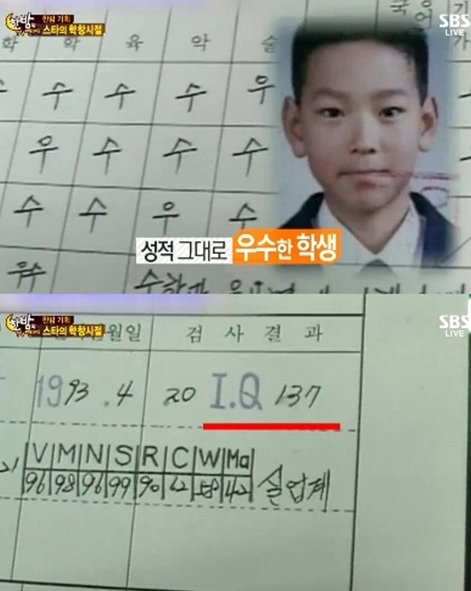 한밤 한밤 기획
스타의 학창시절
SBS
LIVE
국어
학 학 육 악 술
수 수 수 수 우
우 수 수 수
수 수 우 수
우수
성적 그대로 우수한 학생
한밤 한밤 기획
스타의 학창시절
SBS
LIVE
월일 검사결과
1993.4 20 I.Q 137
V M N S R C W Ma
96 98 96 99 90 62 58 42 실업계